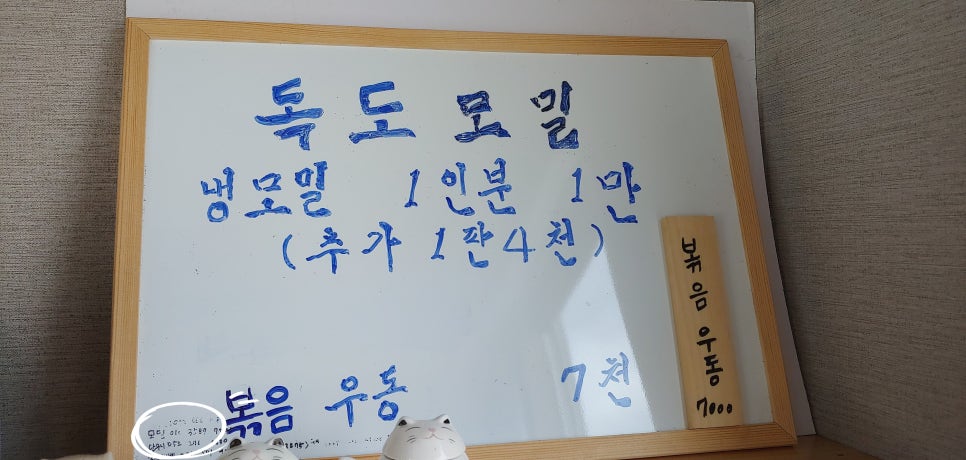 독도모밀
냉모밀 1인분 1만
(추가 1판 4천)
볶음 우동 7천
볶음 우동 7000